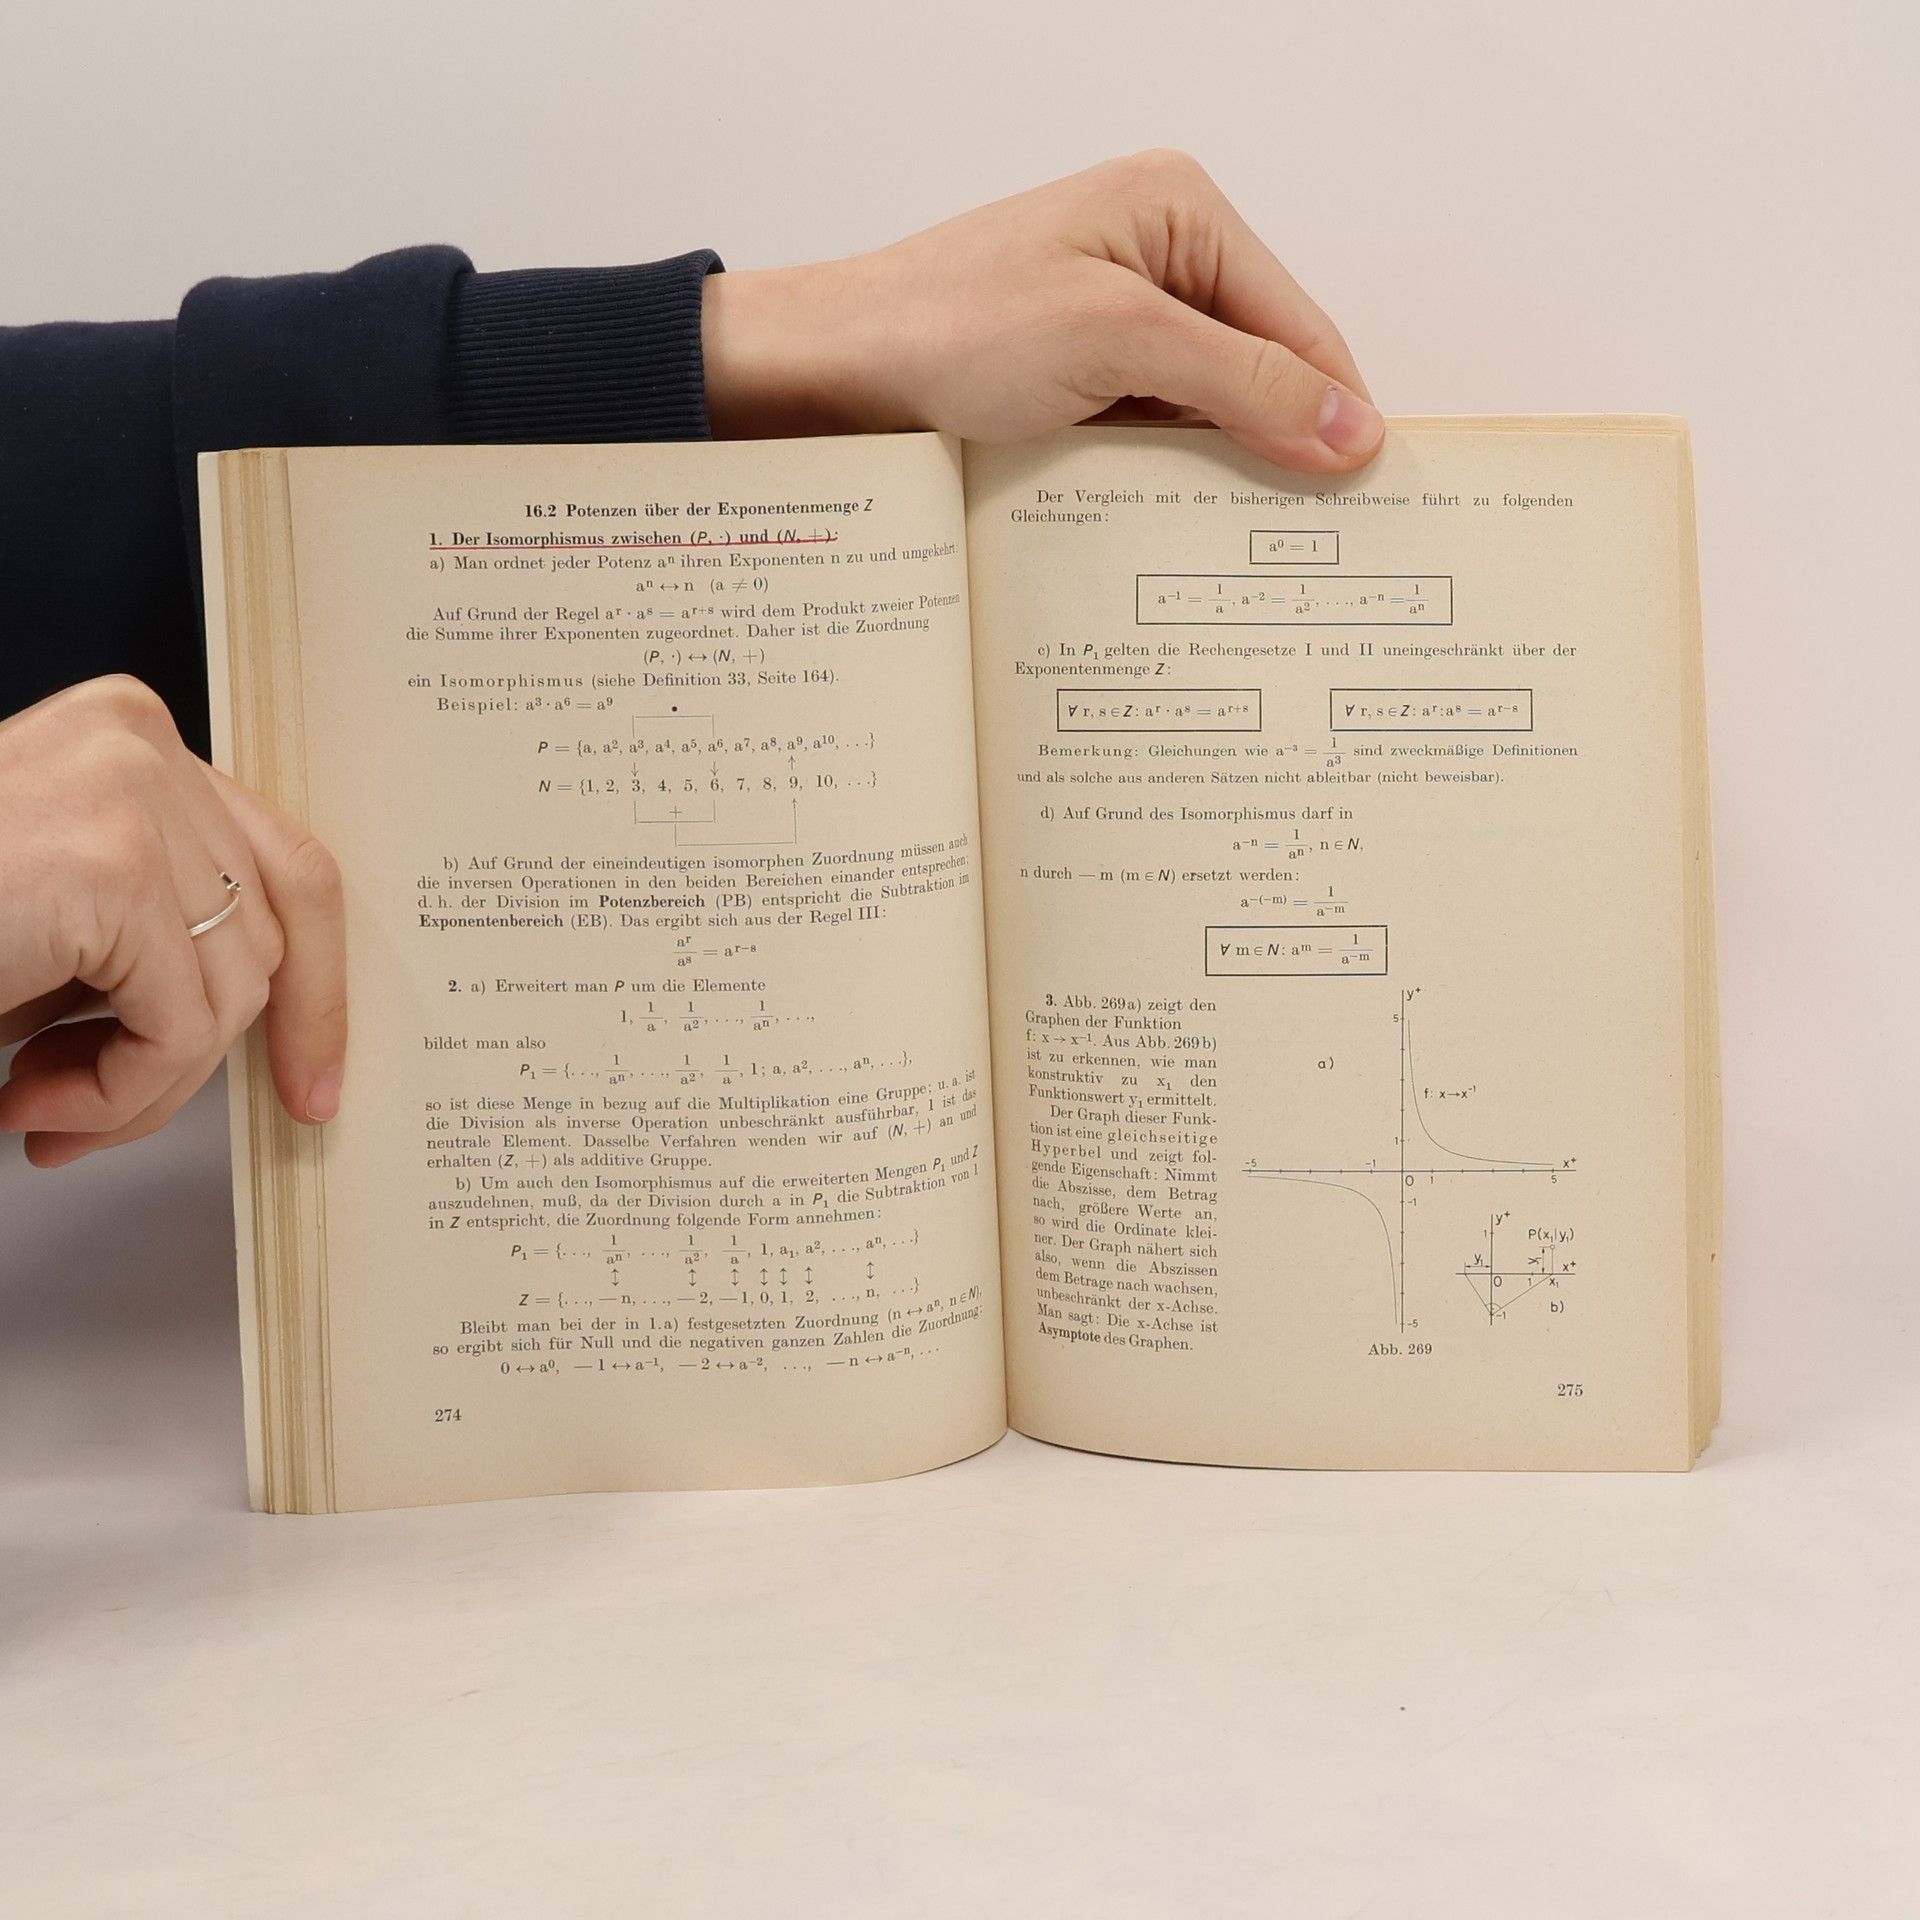 16.2 Potenzen über der Exponentenmenge Z
1. Der Isomorphismus zwischen (P, ·) und (N, +):
a) Man ordnet jeder Potenz aⁿ ihren Exponenten n zu und umgekehrt:
aⁿ ↔ n (a ≠ 0)
Auf Grund der Regel aʳ · aˢ = aʳ⁺ˢ wird dem Produkt zweier Potenzen
die Summe ihrer Exponenten zugeordnet. Daher ist die Zuordnung
(P, ·) ↔ (N, +)
ein Isomorphismus (siehe Definition 33, Seite 164).
Beispiel: a³ · a⁶ = a⁹
·
P = {a, a², a³, a⁴, a⁵, a⁶, a⁷, a⁸, a⁹, a¹⁰, ...}
↓ ↓ ↑
N = {1, 2, 3, 4, 5, 6, 7, 8, 9, 10, ...}
+
b) Auf Grund der eineindeutigen isomorphen Zuordnung müssen auch
die inversen Operationen in den beiden Bereichen einander entsprechen;
d. h. der Division im Potenzbereich (PB) entspricht die Subtraktion im
Exponentenbereich (EB). Das ergibt sich aus der Regel III:
aʳ/aˢ = aʳ⁻ˢ
2. a) Erweitert man P um die Elemente
1, 1/a, 1/a², ..., 1/aⁿ, ...,
bildet man also
P₁ = {..., 1/aⁿ, ..., 1/a², 1/a, 1; a, a², ..., aⁿ, ...},
so ist diese Menge in bezug auf die Multiplikation eine Gruppe; u. a. ist
die Division als inverse Operation unbeschränkt ausführbar, 1 ist das
neutrale Element. Dasselbe Verfahren wenden wir auf (N, +) an und
erhalten (Z, +) als additive Gruppe.
b) Um auch den Isomorphismus auf die erweiterten Mengen P₁ und Z
auszudehnen, muß, da der Division durch a in P₁ die Subtraktion von 1
in Z entspricht, die Zuordnung folgende Form annehmen:
P₁ = {..., 1/aⁿ, ..., 1/a², 1/a, 1, a₁, a², ..., aⁿ, ...}
↕ ↕ ↕ ↕ ↕ ↕ ↕
Z = {..., —n, ..., —2, —1, 0, 1, 2, ..., n, ...}
Bleibt man bei der in 1.a) festgesetzten Zuordnung (n ↔ aⁿ, n ∈ N),
so ergibt sich für Null und die negativen ganzen Zahlen die Zuordnung:
0 ↔ a⁰, —1 ↔ a⁻¹, —2 ↔ a⁻², ..., —n ↔ a⁻ⁿ, ...
274
Der Vergleich mit der bisherigen Schreibweise führt zu folgenden
Gleichungen:
a⁰ = 1
a⁻¹ = 1/a, a⁻² = 1/a², ..., a⁻ⁿ = 1/aⁿ
c) In P₁ gelten die Rechengesetze I und II uneingeschränkt über der
Exponentenmenge Z:
∀ r, s ∈ Z: aʳ · aˢ = aʳ⁺ˢ
∀ r, s ∈ Z: aʳ : aˢ = aʳ⁻ˢ
Bemerkung: Gleichungen wie a⁻³ = 1/a³ sind zweckmäßige Definitionen
und als solche aus anderen Sätzen nicht ableitbar (nicht beweisbar).
d) Auf Grund des Isomorphismus darf in
a⁻ⁿ = 1/aⁿ, n ∈ N,
n durch — m (m ∈ N) ersetzt werden:
a⁻⁽⁻ᵐ⁾ = 1/a⁻ᵐ
∀ m ∈ N: aᵐ = 1/a⁻ᵐ
3. Abb. 269a) zeigt den
Graphen der Funktion
f: x → x⁻¹. Aus Abb. 269b)
ist zu erkennen, wie man
konstruktiv zu x₁ den
Funktionswert y₁ ermittelt.
Der Graph dieser Funk-
tion ist eine gleichseitige
Hyperbel und zeigt fol-
gende Eigenschaft: Nimmt
die Abszisse, dem Betrag
nach, größere Werte an,
so wird die Ordinate klei-
ner. Der Graph nähert sich
also, wenn die Abszissen
dem Betrage nach wachsen,
unbeschränkt der x-Achse.
Man sagt: Die x-Achse ist
Asymptote des Graphen.
y⁺
5
a)
f: x→x⁻¹
1
-5 -1 x⁺
0 1 5
-1
-5
y⁺
1 P(x₁|y₁)
y₁ y₁ x⁺
0 1 x₁
-1 b)
Abb. 269
275